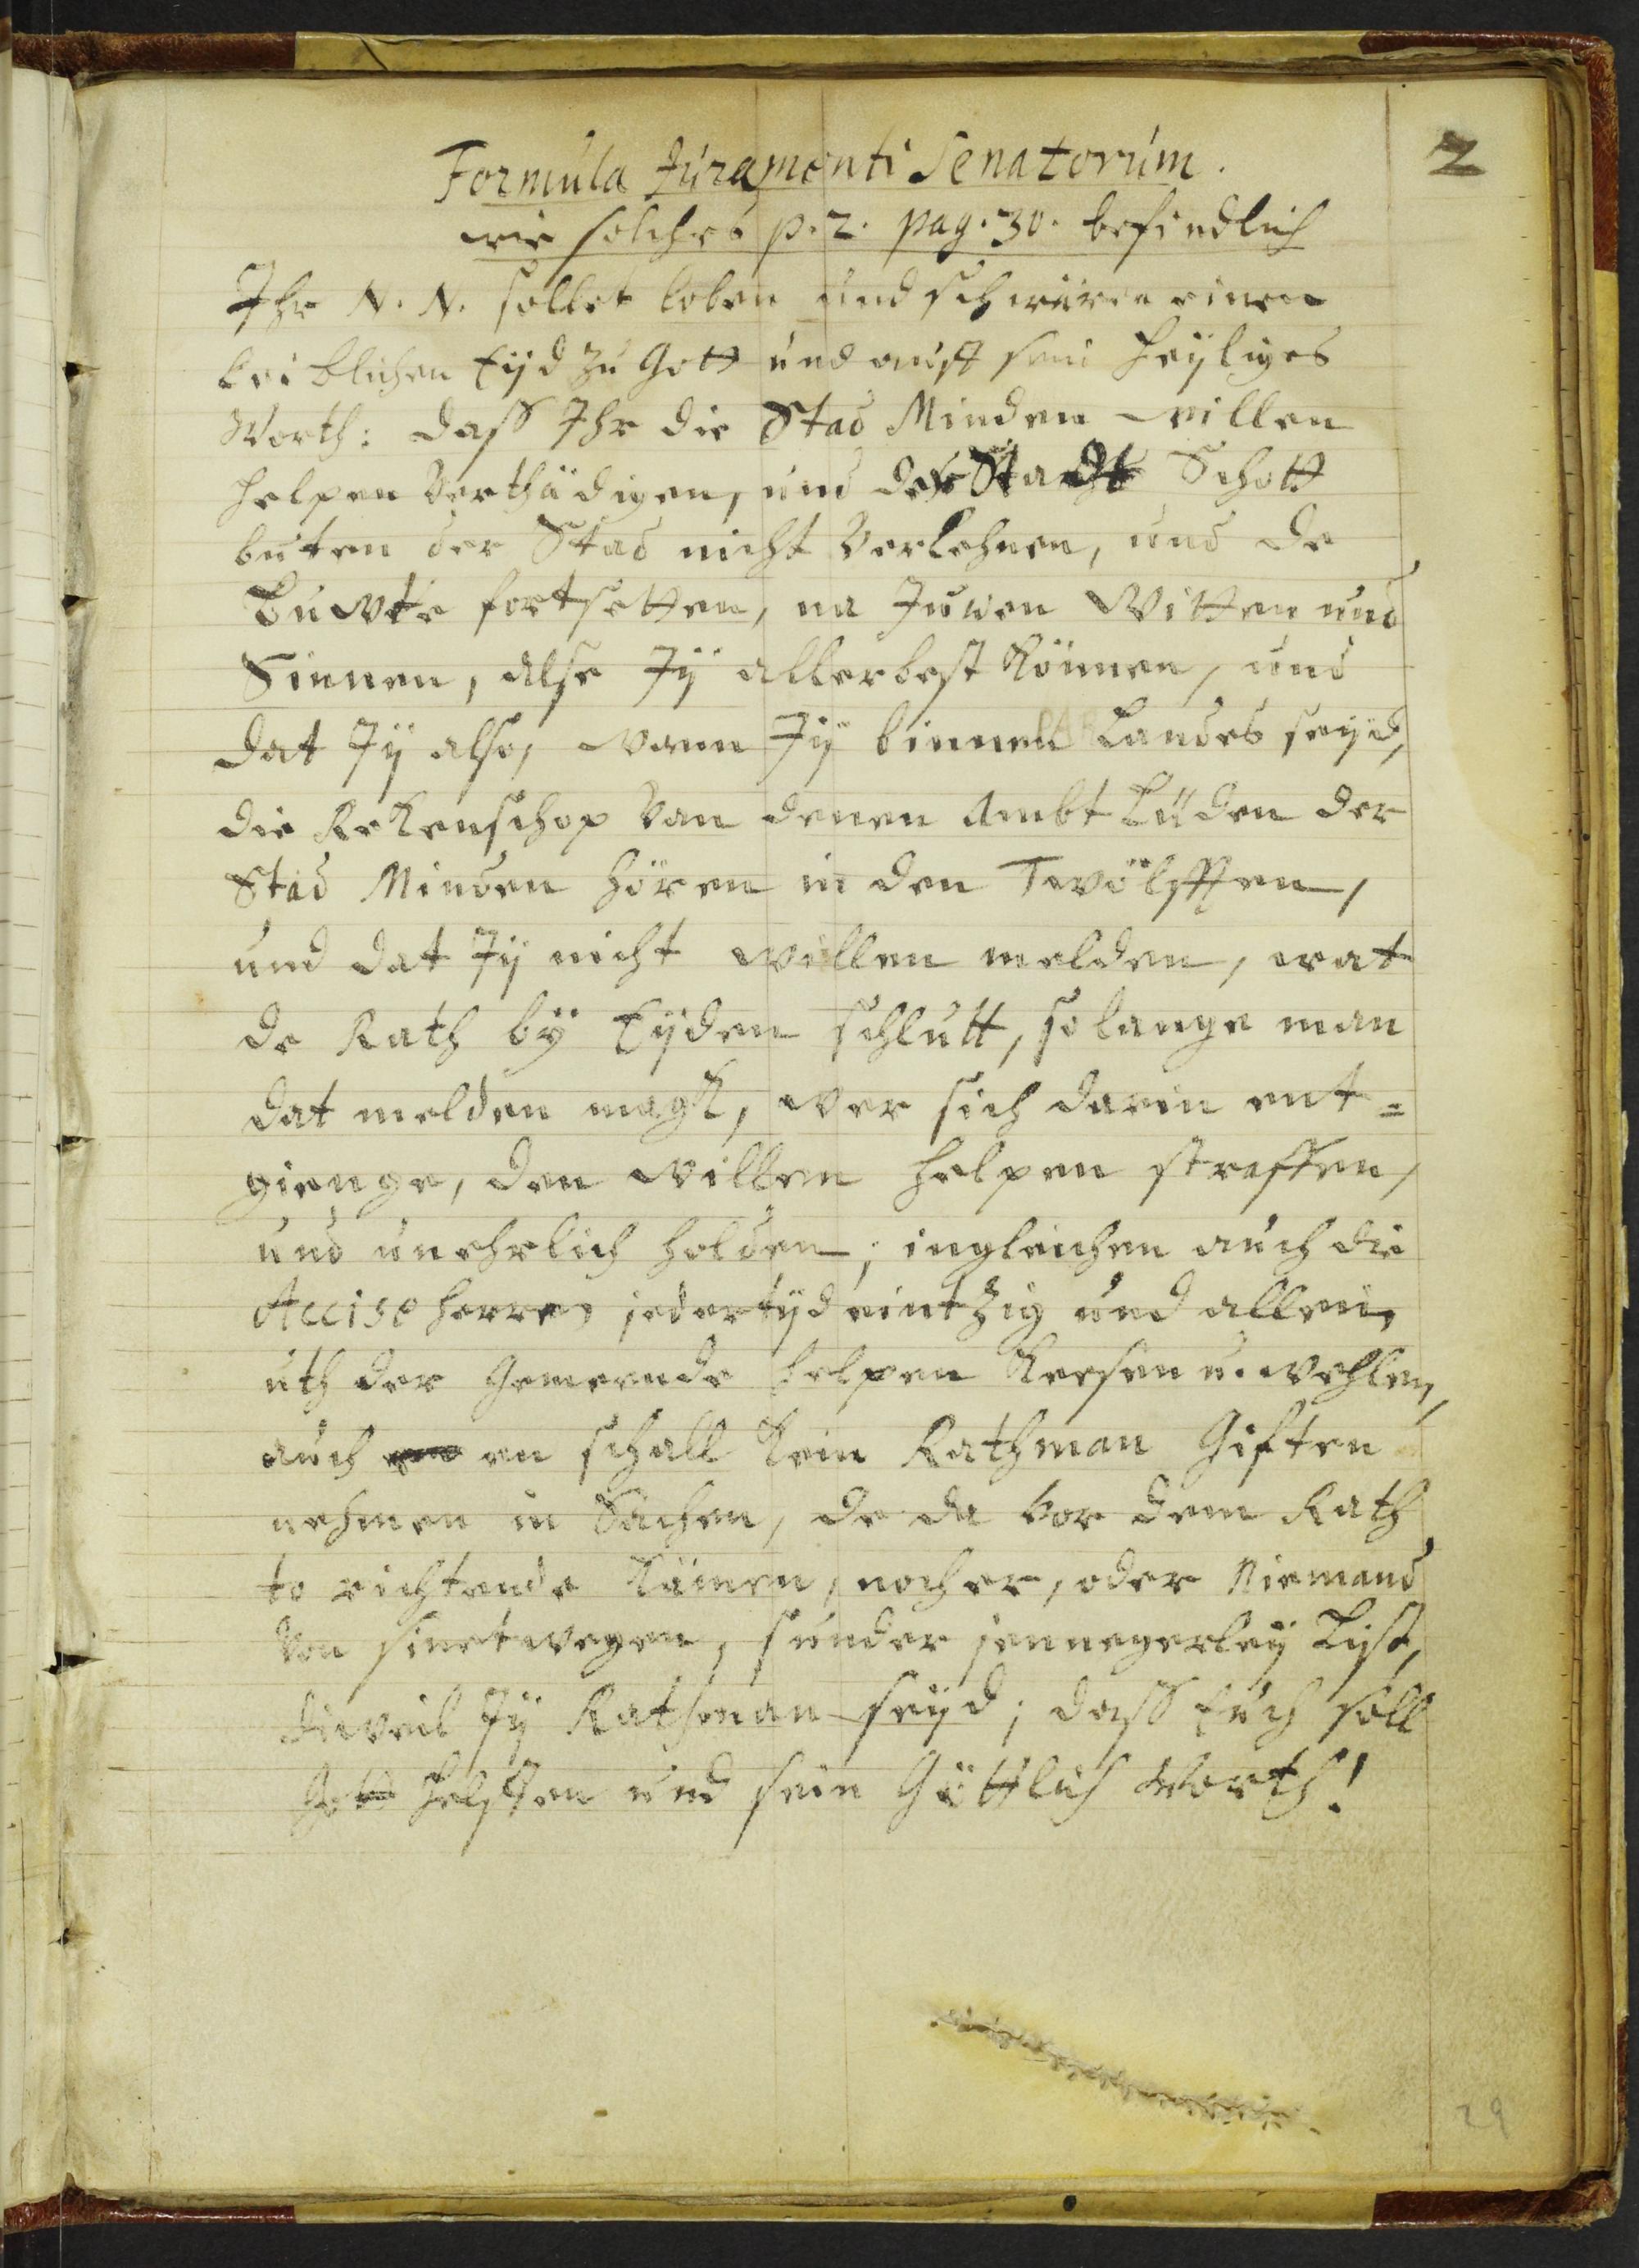 Formula Juramenti Senatorum.
2
wie solches p. 2. pag. 30. befindlich
Ihr N. N. sollet loben und schwüren einen
leiblichen Eÿd zu Gott und auff sein heÿliges
Worth: dass Ihr die Stad Minden willen
helpen Verthädigen, und der Stadt Schott
buten der Stad nicht Verlehnen, und de
fortsetten, na Juwen Witten und
Sinnen, alse Jÿ allerbest können, und
dat Jÿ also, wann Jÿ binnen Landes seÿd,
die Rekenschop Van denen Ambt Lüden der
Stad Minden hören in den Twölfften,
und dat Jÿ nicht willen melden, wat
de Rath bÿ Eÿden schlutt, so lange man
dat melden magk, wer sich darin ent=
gienge, den willen helpen straffen,
und unehrlich holden; ingleichen auch die
Accise herren jedertÿd eintzig und allein,
uth der Gemeende helpen Keesen u. wehlen,
auch en schall kein Rathman Giften
nehmen in Sachen, de da vor dem Rath
to richtende kämen, noch er, oder Niemand
von sinetwegen, sunder jennegerleÿ List,
dieweil Jÿ Rathman seÿd; dass Euch soll
Gott helffen und sein Göttlich Worth!
29